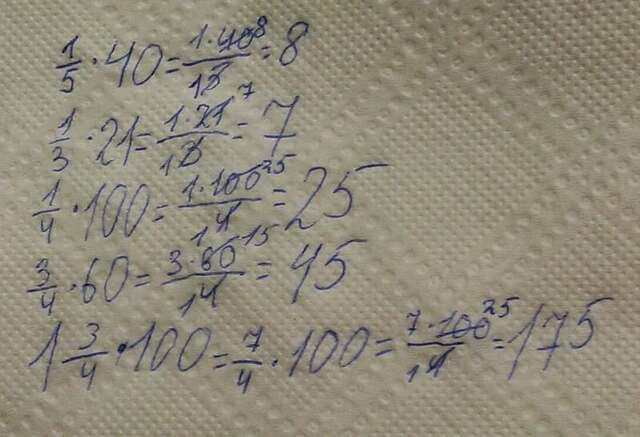 1/5 · 40 = 1·40 8/1 5 = 8
1/3 · 21 = 1·21 7/1 3 = 7
1/4 · 100 = 1·100 25/1 4 = 25
3/4 · 60 = 3·60 15/1 4 = 45
1 3/4 · 100 = 7/4 · 100 = 7·100 25/1 4 = 175